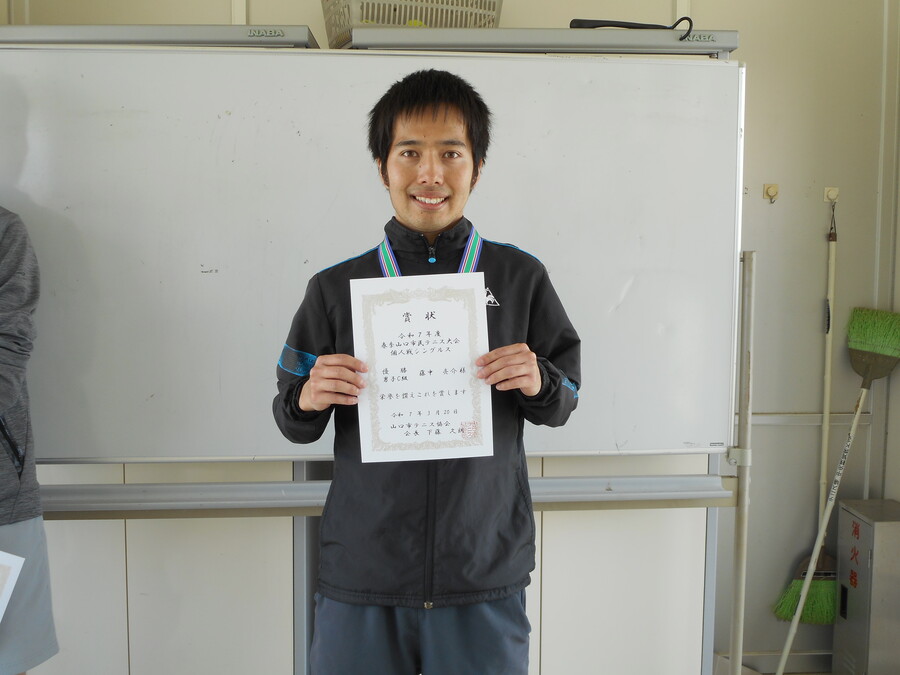 INABA
INABA
賞状
令和7年度
春季山口市民テニス大会
個人戦シングルス
優勝
男子C級
藤中 様
栄誉を讃えこれを賞します
令和7年3月20日
山口市テニス協会
会長 下藤
消火器